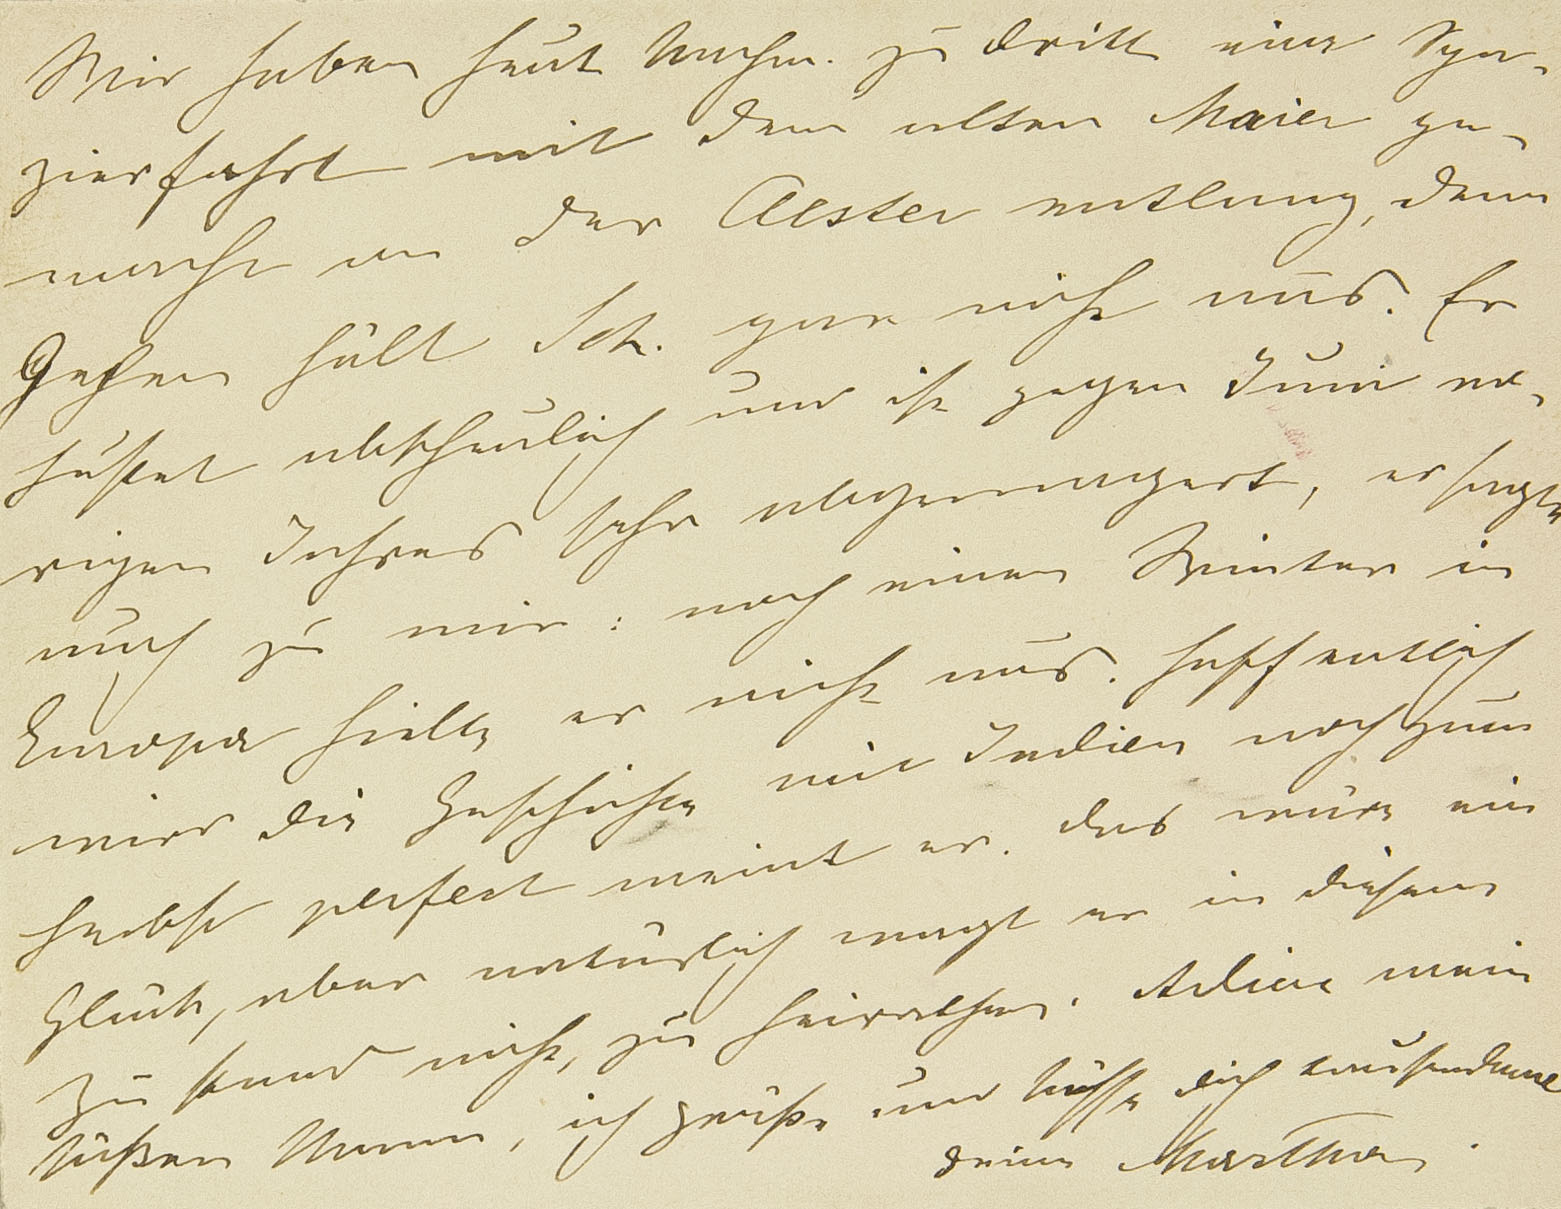 Wir haben heut Nachm. zu dritt eine Spa-
zierfahrt mit dem alten Maier ge-
macht an der Alster entlang, denn
Gehen hält Sch. gar nicht aus. Er
hustet abscheulich und ist gegen Juni vo-
rigen Jahres sehr abgemagert, er sagte
auch zu mir: noch einen Winter in
Europa hielte er nicht aus. Hoffentlich
wird die Geschichte mit Indien noch zum
Herbst perfect meint er. Das wäre ein
Glück, aber natürlich wagt er in diesem
Zustand nicht, zu heirathen. Adieu mein
süßer Mann, ich grüße und küsse dich tausendmal
deine Martha.